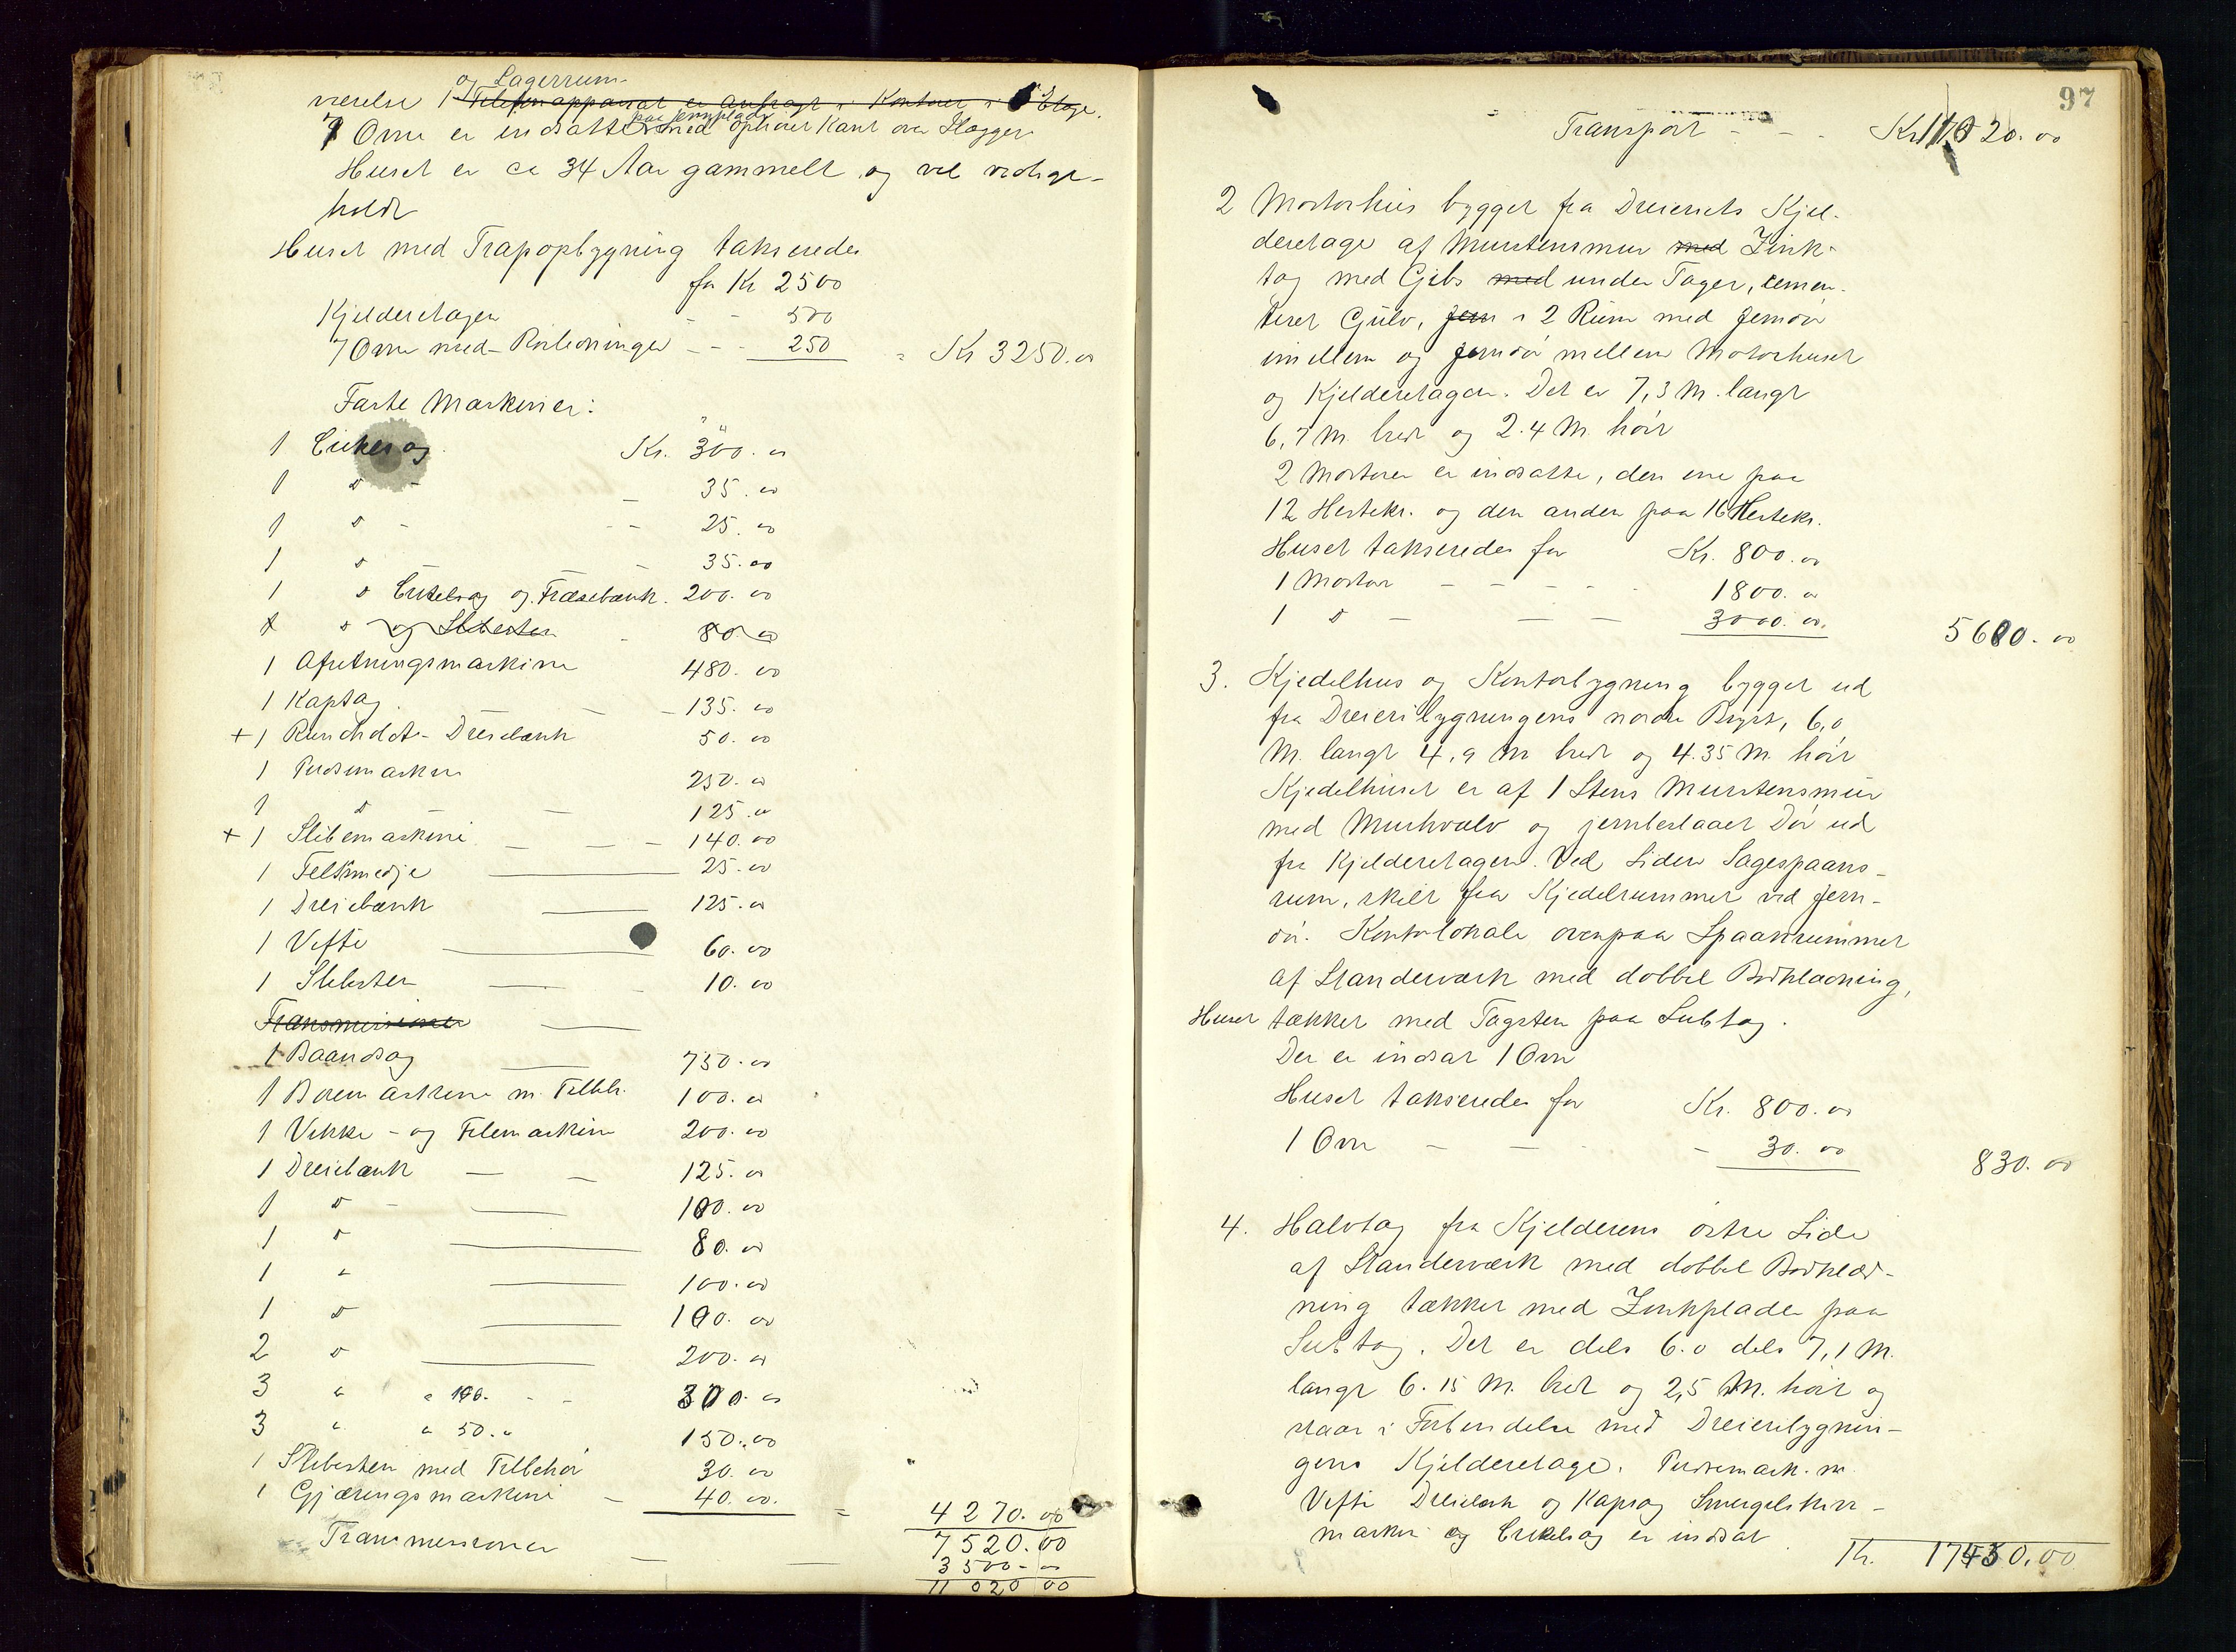 og Lagerrum
værelse 1 Telefonapparat er anbragt i Kontoret i Etage.
paa Jernplade
7 Ovne er indsatte med ophöiet Kant over Flagger
Huset er ca 34 Aar gammelt og vel vedlige-
holdt
Huset med Trapopbygning takseredes
for Kr 2500
Kjelderetagen - - 500
7 Ovne med Rörledninger - - 250 = Kr 3250.00
Faste Maskiner:
1 Cirkelsag. Kr. 300.00
1 d - - 35.00
1 d - - 25.00
1 d - 35.00
1 d Cirkelsag og Fræsebænk. 200.00
1 d og Slibesten - 80.00
1 Afretningsmaskine 480.00
1 Kapsag - - 135.00
+ 1 Rundstok- Dreiebænk 50.00
1 Pudsemaskine 250.00
1 d - - 125.00
+ 1 Slibemaskine - - - 140.00
1 Feltsmedje - 25.00
1 Dreiebænk - 125.00
1 Vifte - 60.00
1 Slibesten - - 10.00
Transmissioner -
1 Baandsag - 750.00
1 Boremaskine m. Tilbh. 100.00
1 Vikke- og Filemaskine 200.00
1 Dreiebænk - - 125.00
1 d - - 100.00
1 d - 80.00
1 " - 100.00
1 d - 100.00
2 d - 200.00
3 " " 100. - - 300.00
3 " " 50. " 150.00
1 Slibesten med Tilbehör 30.00
1 Gjæringsmaskine - 40.00. = 4270.00
7520.00
Transmissioner - - 3500-00
11 020 00
97
Transport - - - Kr 11020.00
2 Motorhus bygget fra Dreieriets Kjel-
deretage af Murstensmur med Zink-
tag med Gibs med under Taget, cemen-
teret Gulv, Jern i 2 Rum med Jerndör
imellem og Jerndör mellem Motorhuset
og Kjelderetagen. Det er 7,3 M. langt
6,7 M. bredt og 2.4 M. höit
2 Motorer er indsatte, den ene paa
12 Hestekr. og den anden paa 16 Hestekr.
Huset takseredes for Kr. 800.00
1 Motor - - - - 1800.00
1 d - - - 3000.00. 5600.00
3. Kjedelhus og Kontorbygning bygget ud
fra Dreieribygningens nordre Bryst, 6,0
M. langt 4,9 M bredt og 4.35 M. höit
Kjedelhuset er af 1 Stens Murstensmur
med Murhvælv og jernbeslaaet Dör ud
fra Kjelderetagen. Ved Siden Sagespaans-
rum, skilt fra Kjedelrummet ved Jern-
dör. Kontorlokale ovenpaa Spaanrummet
af Standerværk med dobbel Bordklædning,
Huset tækket med Tagsten paa Subtag.
Der er indsat 1 Ovn
Huset takseredes for Kr. 800.00
1 Ovn - - - 30.00 830.00
4. Halvtag fra Kjelderens östre Side
af Standerværk med dobbel Bordklæd-
ning tækket med Zinkplader paa
Subtag. Det er dels 6.0 dels 7,1 M.
langt 6.15 M. bredt og 2,5 M. höit og
staar i Forbindelse med Dreieribygnin-
gens Kjelderetage. Pudsemask. m
Vifte Dreiebænk og Kapsag Smergelskive-
maskin og Cirkelsag er indsat
Kr. 17450.00